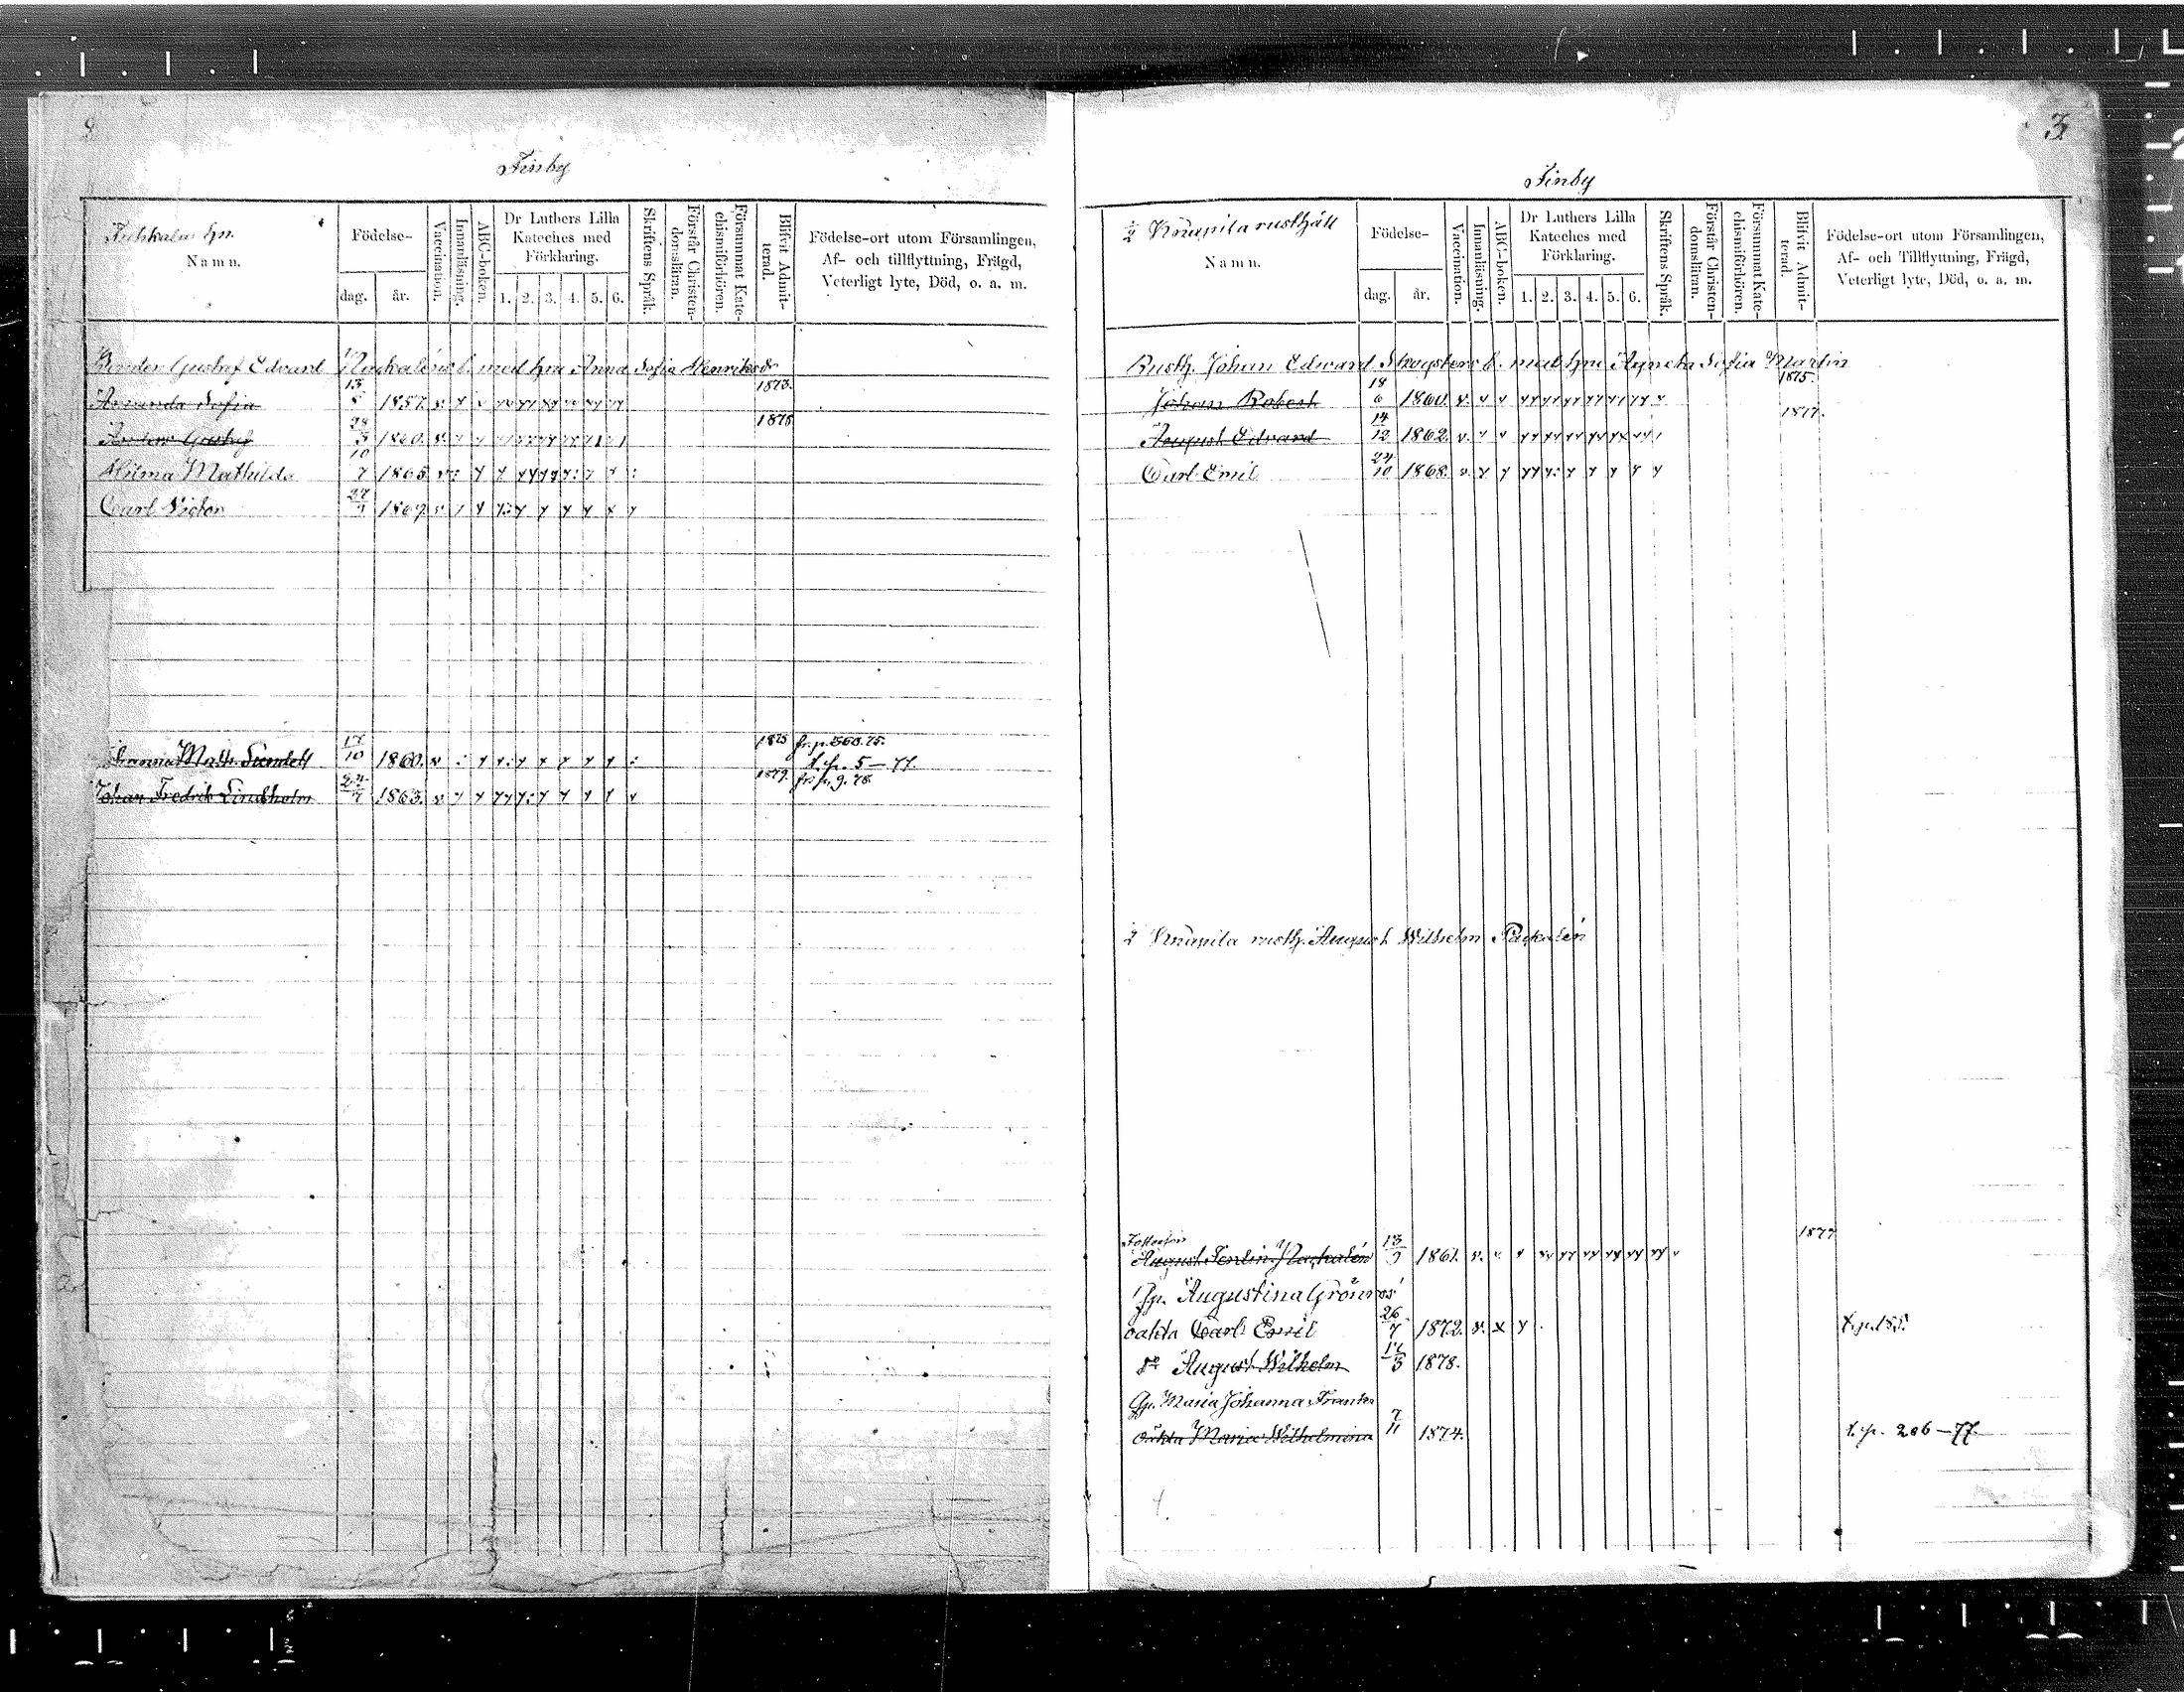 Finby
hn.
Namn.
Födelse-
dag.
år.
Vaccination.
Innanläsning.
ABC-boken.
Dr Luthers Lilla
Kateches med
Förklaring.
1. 2. 3. 4. 5. 6.
Skriftens Språk.
Förstår Christen-
domsläran.
Försummat Kate-
chismiförhören.
Blifvit Admit-
terad.
Födelse-ort utom Församlingen,
Af- och tillflyttning, Frägd,
Veterligt lyte, Död, o. a. m.
Bonden Gustaf Edvard b. med hu Anna Sofia Henriksdr
Amanda Sofia 13 1857. 1873.
Gustaf 28/3 1860. 1875
Hilma Mathilda 10/7 1865
Carl Victor 27 1867.
Sundell 17/10 1860. 1875 fr. p. 568. 75.
t. p. 5-77.
Johan Fredrik Lindholm 24/7 1863. 1879. fr. p. 9. 78.
3
Finby
1/2 Knapila rusthåll
Namn.
Födelse-
dag.
år.
Vaccination.
Innanläsning.
ABC-boken.
Dr Luthers Lilla
Kateches med
Förklaring.
1. 2. 3. 4. 5. 6.
Skriftens Språk.
Förstår Christen-
domsläran.
Försummat Kate-
chismiförhören.
Blifvit Admit-
terad.
Födelse-ort utom Församlingen,
Af- och Tillflyttning, Frägd,
Veterligt lyte, Död, o. a. m.
Rusth. Johan Edward Skogsters b. med hu Agneta Sofia Martin
Johan Robert 18/6 1860. 1875.
August Edvard 14/12 1862. 1877.
Carl Emil 24/10 1868.
1/2 Knapila rusth. August Wilhelm Packalén
Fosterson
August Packalén 13/9 1861. 1877
Gp. Augustina Grönroos
oäkta Carl Emil 26/7 1872. t. p. 155.
do August Wilhelm 12/3 1878.
Gp. Maria Johanna
oäkta Maria Wilhelmina 7/11 1874. t. p. 206-77.